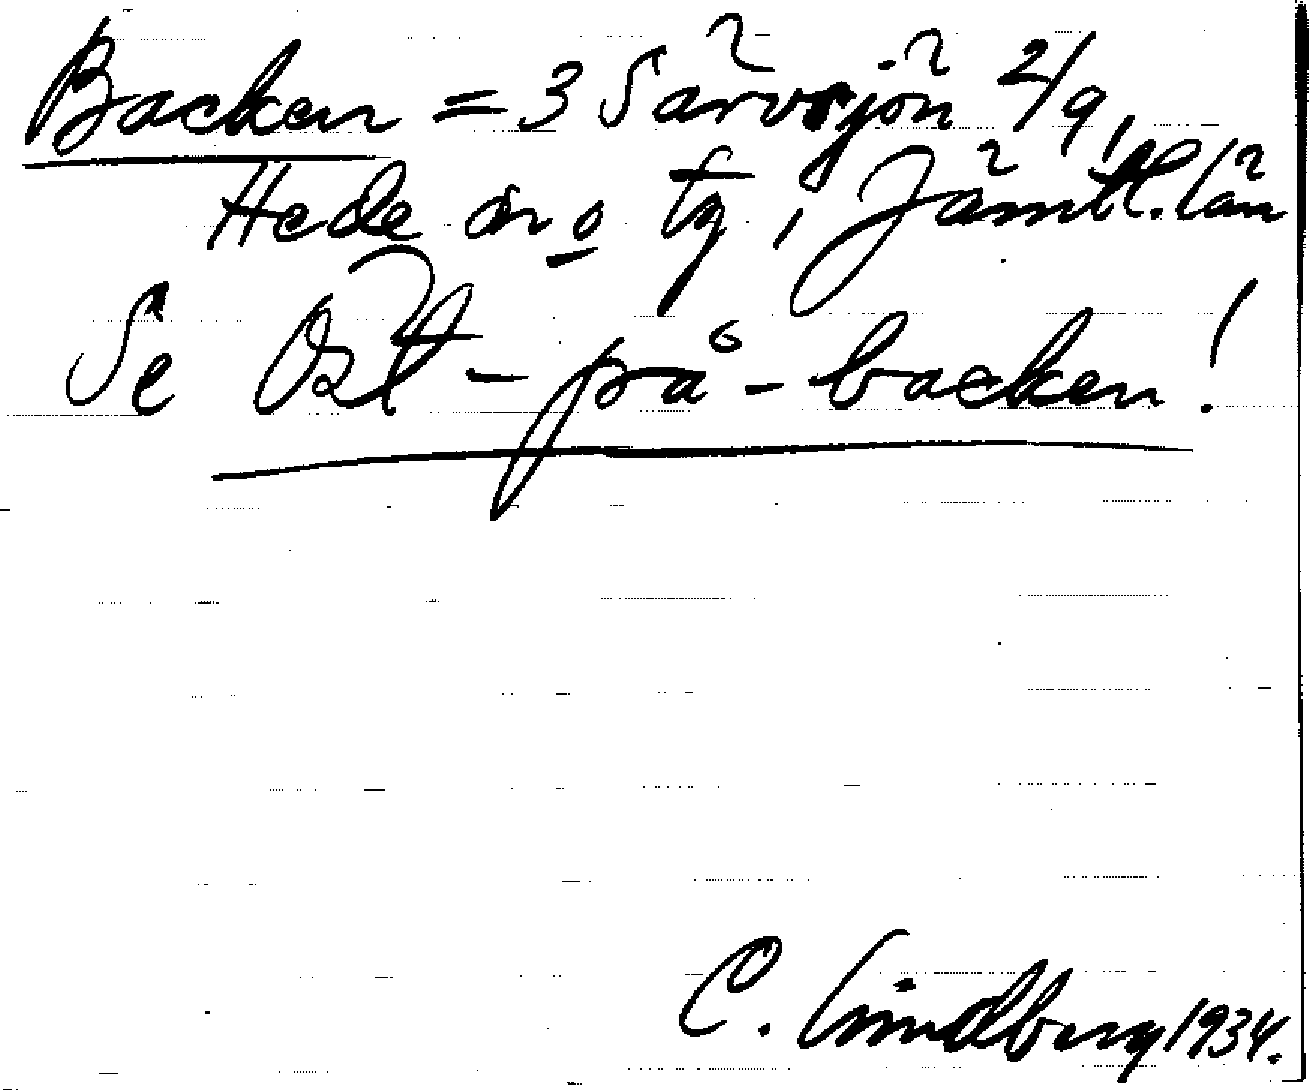 Backen = 3 Särvsjön 2/9,
Hede sn o tg, Jämtl. län
Se Öst-på-backen!
C. Lindberg 1934.